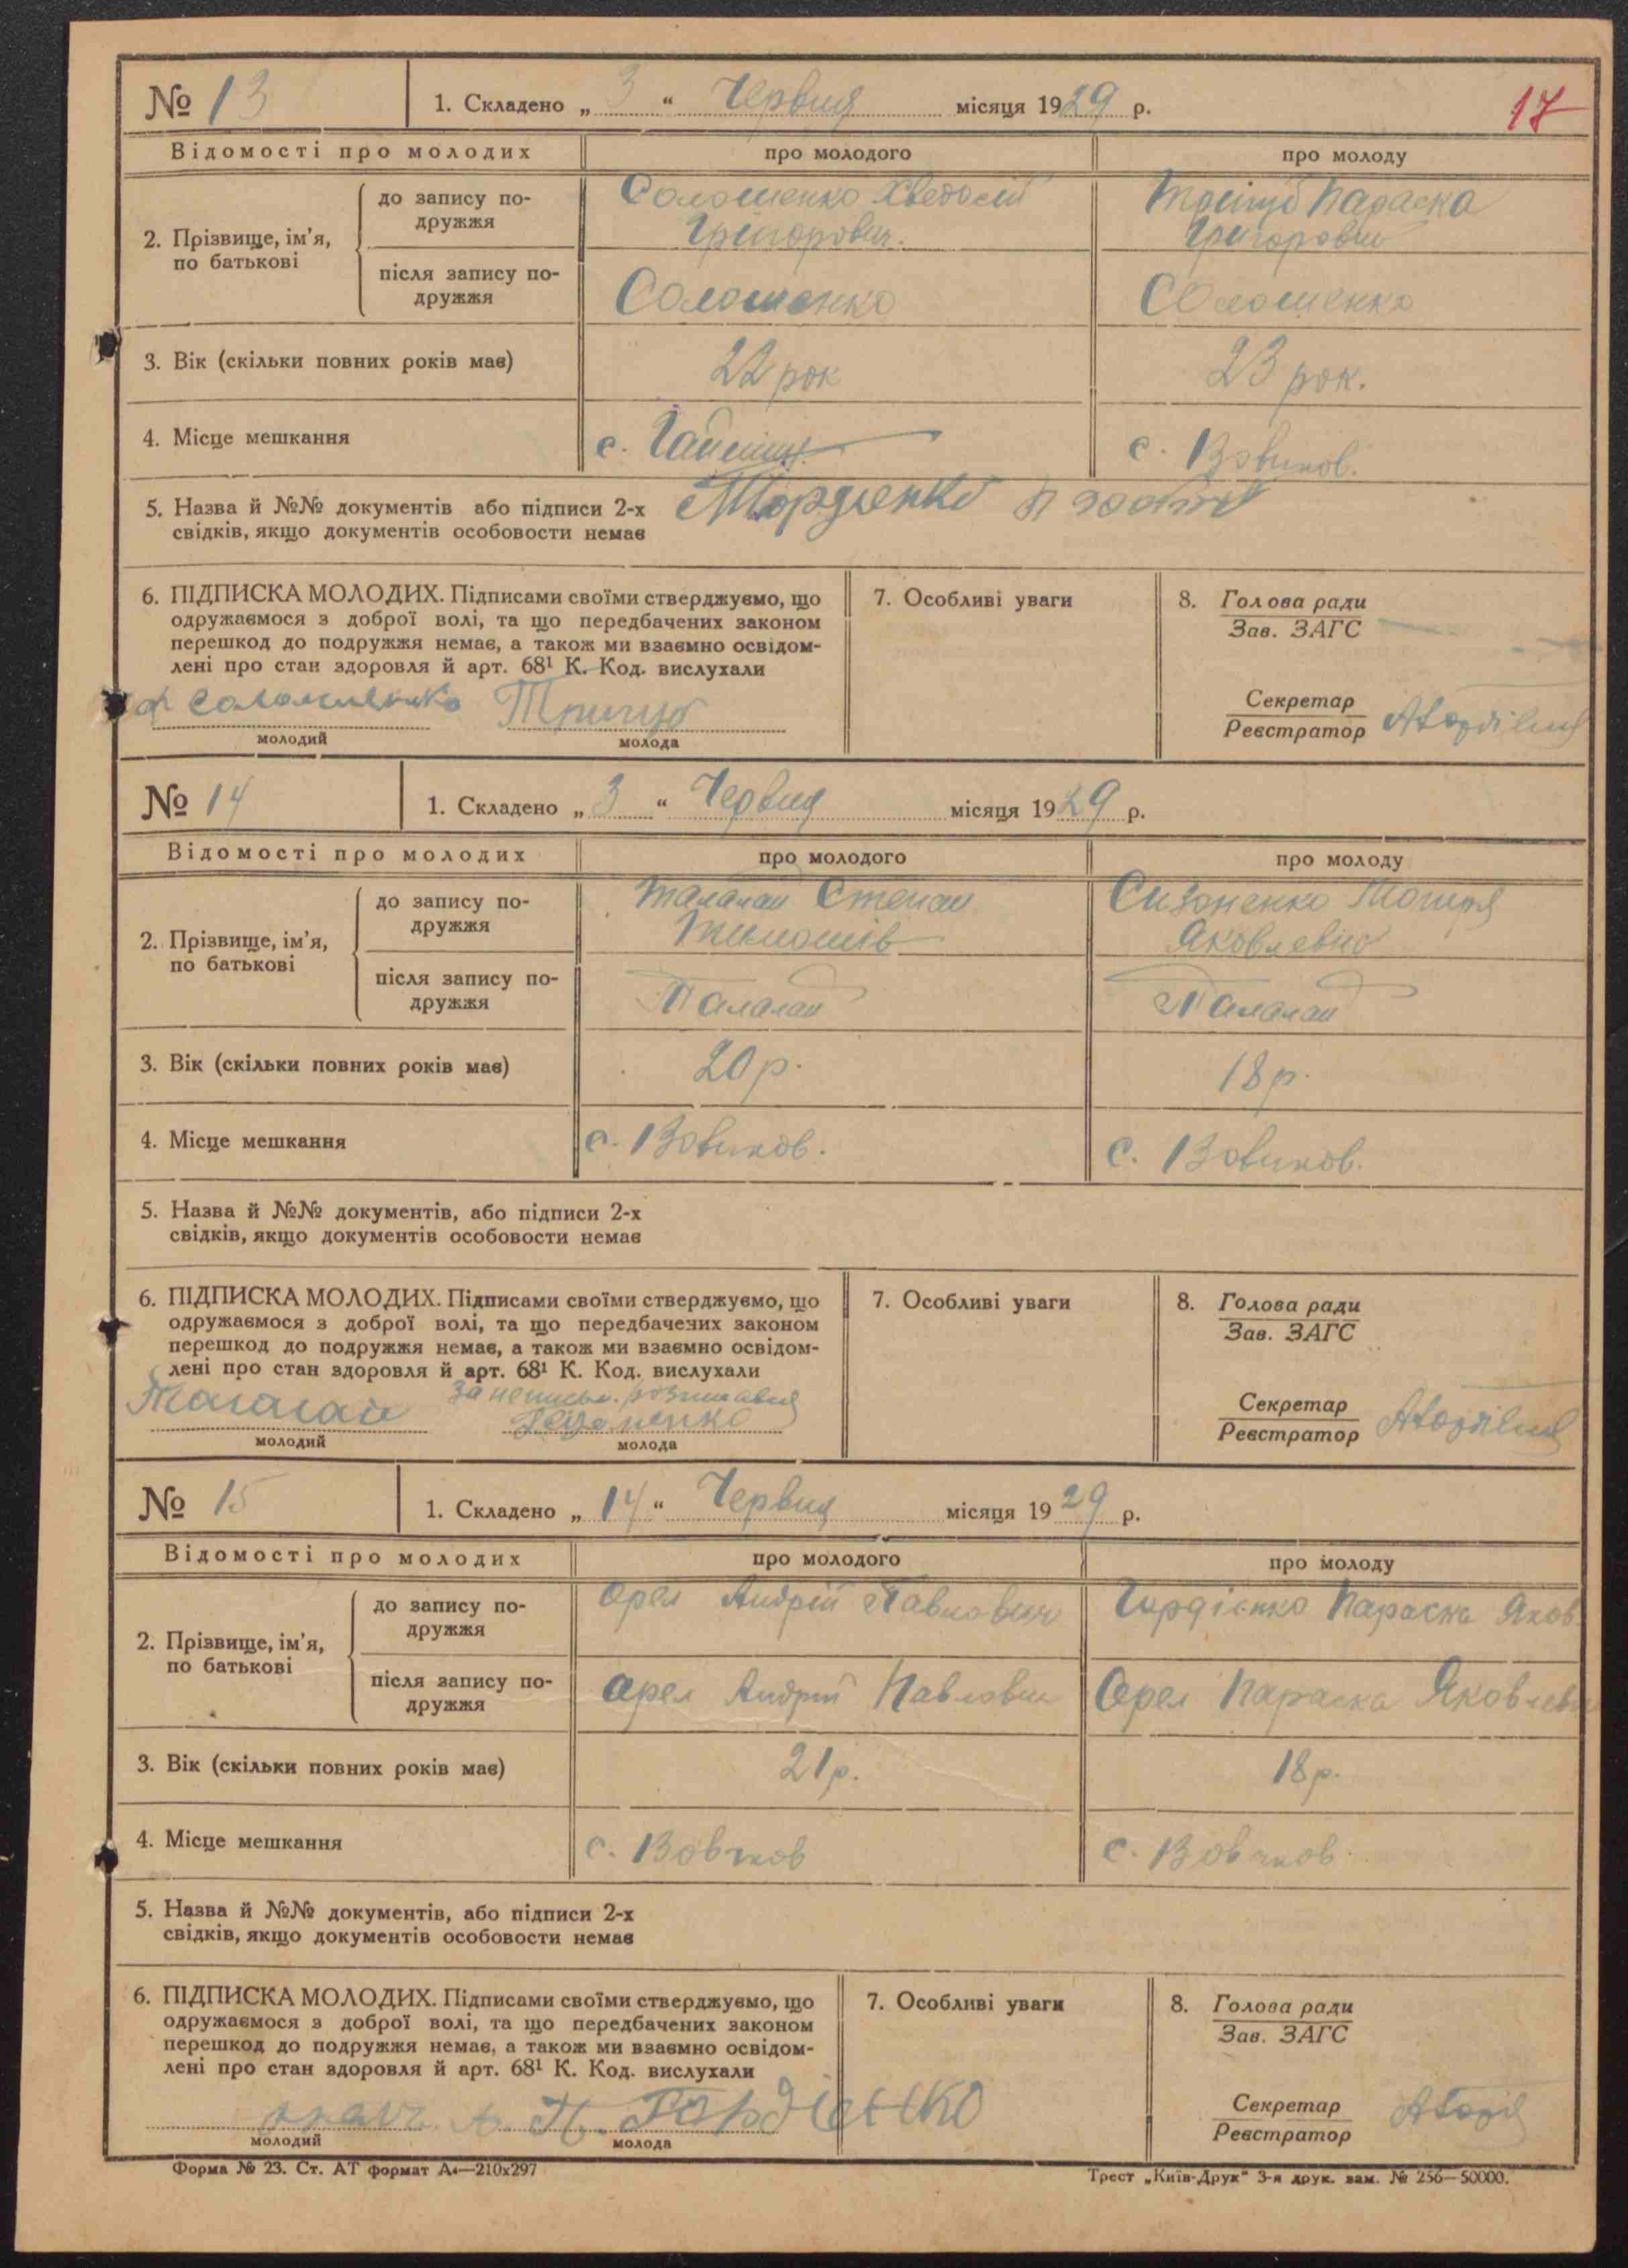 17
№ 13 1. Складено „ 3 “ Червня місяця 1929 р.
Відомості про молодих про молодого про молоду
2. Прізвище, ім’я, по батькові
до запису подружжя
Солошенко Хведосій Трігуб Параска
Григорович. Григоровн
після запису подружжя
Солошенко Солошенко
3. Вік (скільки повних років має) 22 рок 23 рок.
4. Місце мешкання с. с. Вовчков.
5. Назва й №№ документів або підписи 2-х
свідків, якщо документів особовости немає
6. ПІДПИСКА МОЛОДИХ. Підписами своїми стверджуємо, що
одружаємося з доброї волі, та що передбачених законом
перешкод до подружжя немає, а також ми взаємно освідом-
лені про стан здоровля й арт. 68¹ К. Код. вислухали
Тригуб
молодий молода
7. Особливі уваги
8. Голова ради
Зав. ЗАГС
Секретар
Реєстратор
№ 14 1. Складено „ 3 “ Червня місяця 1929 р.
Відомості про молодих про молодого про молоду
2. Прізвище, ім’я, по батькові
до запису подружжя
Талалай Степан Сизоненко
Яковлевна
після запису подружжя
Талалай Талалай
3. Вік (скільки повних років має) 20 р. 18 р.
4. Місце мешкання с. Вовчков. с. Вовчков.
5. Назва й №№ документів, або підписи 2-х
свідків, якщо документів особовости немає
6. ПІДПИСКА МОЛОДИХ. Підписами своїми стверджуємо, що
одружаємося з доброї волі, та що передбачених законом
перешкод до подружжя немає, а також ми взаємно освідом-
лені про стан здоровля й арт. 68¹ К. Код. вислухали
Талалай
молодий молода
7. Особливі уваги
8. Голова ради
Зав. ЗАГС
Секретар
Реєстратор
№ 15 1. Складено „ 14 “ Червня місяця 1929 р.
Відомості про молодих про молодого про молоду
2. Прізвище, ім’я, по батькові
до запису подружжя
Орел Андрій Павлович Гордієнко Параска Яков
після запису подружжя
Орел Андрій Павлович Орел Параска Яковлевн
3. Вік (скільки повних років має) 21 р. 18 р.
4. Місце мешкання с. Вовчков с. Вовчков.
5. Назва й №№ документів, або підписи 2-х
свідків, якщо документів особовости немає
6. ПІДПИСКА МОЛОДИХ. Підписами своїми стверджуємо, що
одружаємося з доброї волі, та що передбачених законом
перешкод до подружжя немає, а також ми взаємно освідом-
лені про стан здоровля й арт. 68¹ К. Код. вислухали
П. Гордіенко
молодий молода
7. Особливі уваги
8. Голова ради
Зав. ЗАГС
Секретар
Реєстратор
Форма № 23. Ст. АТ формат А₄—210х297 Трест „Київ-Друк“ 3-я друк. зам. № 256—50000.